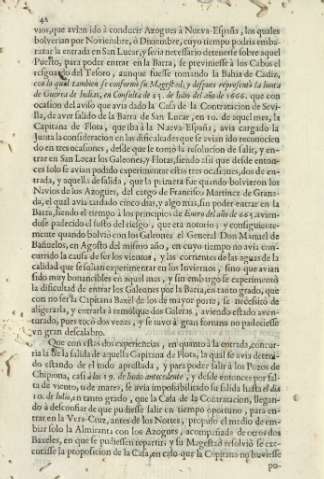 42
vios, que avian ido à conducir Azogues à Nueva-España, los quales
bolverian por Noviembre, ò Diziembre, cuyo tiempo podria emba-
raçar la entrada en San Lucar, y seria necessario detenerse sobre aquel
Puesto, para poder entrar en la Barra, se previniesse à los Cabos el
resguardo del Tesoro, aunque fuesse tomando la Bahia de Cadiz,
con lo qual tambien se conformò su Magestad, y despues representò la Junta
de Guerra de Indias, en Consulta de 23. de Iulio del año de 1666. que con
ocasion del aviso que avia dado la Casa de la Contratacion de Sevi-
lla, de aver salido de la Barra de San Lucar, en 10. de aquel mes, la
Capitana de Flota, que iba à la Nueva España, avia cargado la
Junta la consideracion en las dificultades que se avian ido reconocien-
do en tres ocasiones, desde que se tomò la resolucion de salir, y en-
trar en San Lucar los Galeones, y Flotas, siendo assi que desde enton-
ces solo se avian podido experimentar estas tres ocasiones, dos de en-
trada, y aquella de salida, que la primera fue quando bolvieron los
Navios de los Azogues, del cargo de Francisco Martinez de Grana-
da, el qual avia tardado cinco dias, y algo mas, sin poder entrar en la
Barra, siendo el tiempo à los principios de Enero del año de 665. avien-
dose padecido el susto del riesgo, que era notorio; y consiguiente-
mente quando bolviò con los Galeones el General Don Manuel de
Bañuelos, en Agosto del mismo año, en cuyo tiempo no avia con-
currido la causa de ser los vientos, y las corrientes de las aguas de la
calidad que se solian experimentar en los Inviernos, sino que avian
sido muy bonancibles en aquel mes, y sin embargo se experimentò
la dificultad de entrar los Galeones por la Barra, en tanto grado, que
con no ser la Capitana Baxèl de los de mayor porte, se necessitò de
aligerarla, y entrarla à remolque dos Galeras, aviendo estado aven-
turado, pues tocò dos vezes, y se tuvo à gran fortuna no padeciesse
vn gran descalabro.
Que con estas dos experiencias, en quanto à la entrada, concur-
ria la de la salida de aquella Capitana de Flota, la qual se avia deteni-
do estando de el todo aprestada, y para poder salir à los Pozos de
Chipiona, casi desde 19. de Iunio antecedente, y desde entonces por fal-
ta de viento, ù de mares, se avia impossibilitado su salida hasta el dia
10. de Iulio, en tanto grado, que la Casa de la Contratacion, llegan-
do à desconfiar de que pudiesse salir en tiempo oportuno, para en-
trar en la Vera-Cruz, antes de los Nortes, propuso el medio de em-
biar solo la Almiranta con los Azogues, acompañada de otros dos
Baxeles, en que se pudiessen repartir; y su Magestad resolviò se exe-
cutasse la proposicion de la Casa, en caso que la Capitana no huviesse
po-